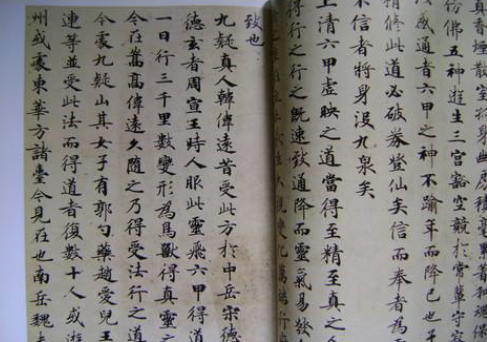 香煙散室孤身幽房積毫累著和魂保
彷彿五神遊生三宮豁空競於常輩守寂
感通者六甲之神不踰年而降已也子
精修此道必破券登仙矣信而奉者為
不信者將身沒九泉矣
上清六甲虛映之道當得至精至真之人
得行之行之既速致道降而靈氣易發
視變化萬端行
致也
九疑真人韓偉遠昔受此方於中岳宋德
德玄者周宣王時人服此靈飛六甲得道
一日行三千里數變形為鳥獸得真靈之
今在嵩高偉遠久隨之乃得受法行之道
今處九疑山其女子有郭勺藥趙愛兒王
連等並受此法而得道者復數十人或遊
州或處東華方諸臺今見在也南岳魏夫